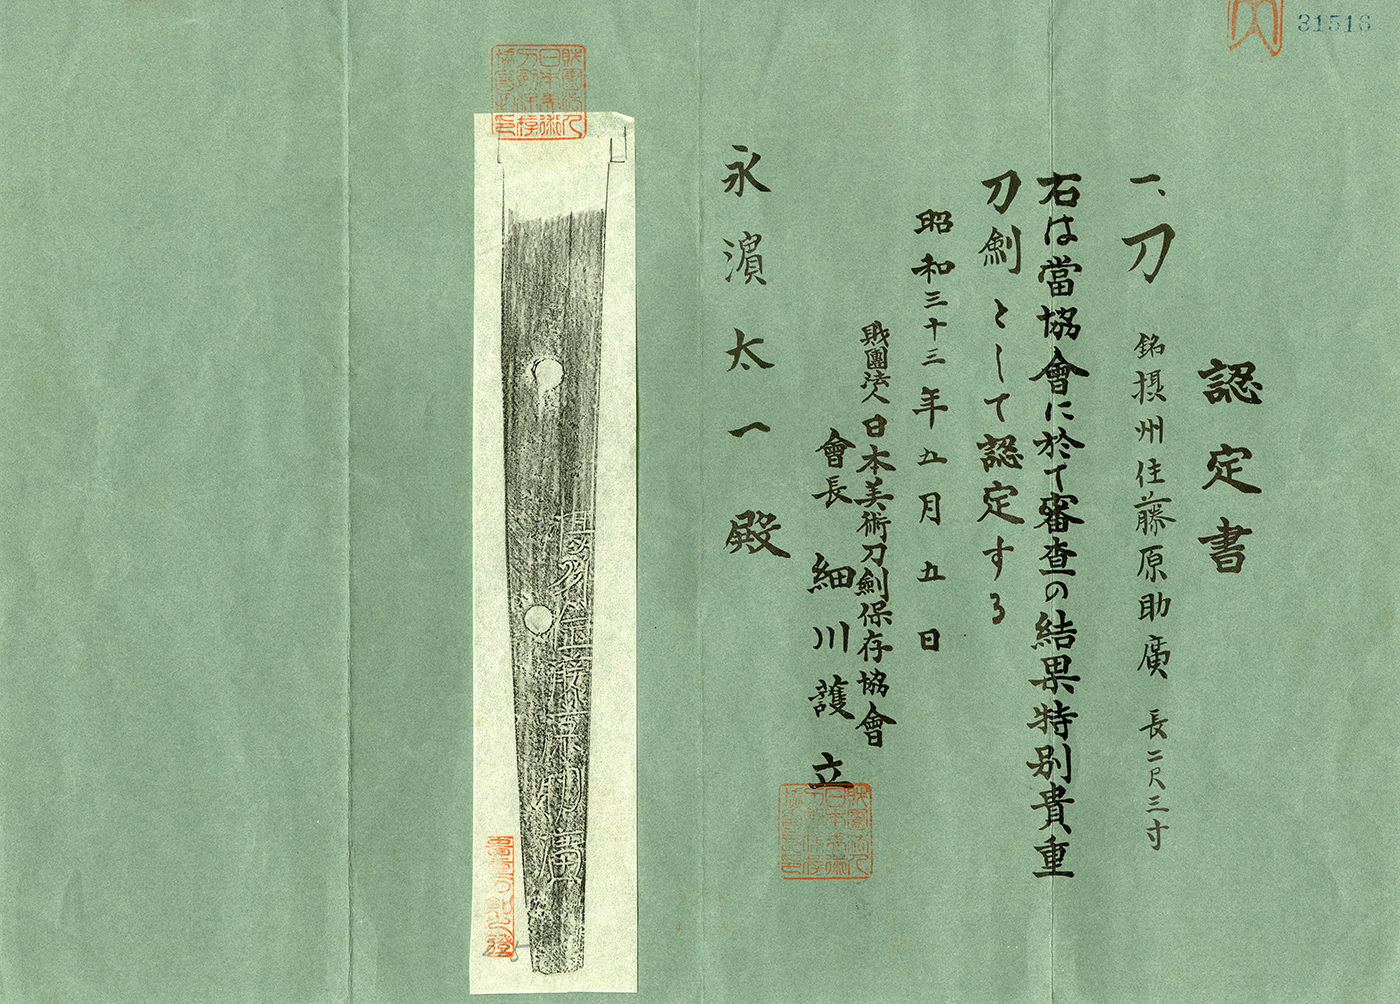 31516
認定書
一、刀 銘摂州住藤原助廣 長二尺三寸
右は當協會に於て審査の結果特別貴重
刀劍として認定する
昭和三十三年五月五日
財團法人日本美術刀劍保存協會
會長 細川護立
永濱太一殿
財團法人
日本美術
刀劍保存
協會之印
摂州住藤原助廣
財團法人
日本美術
刀劍保存
協會長印